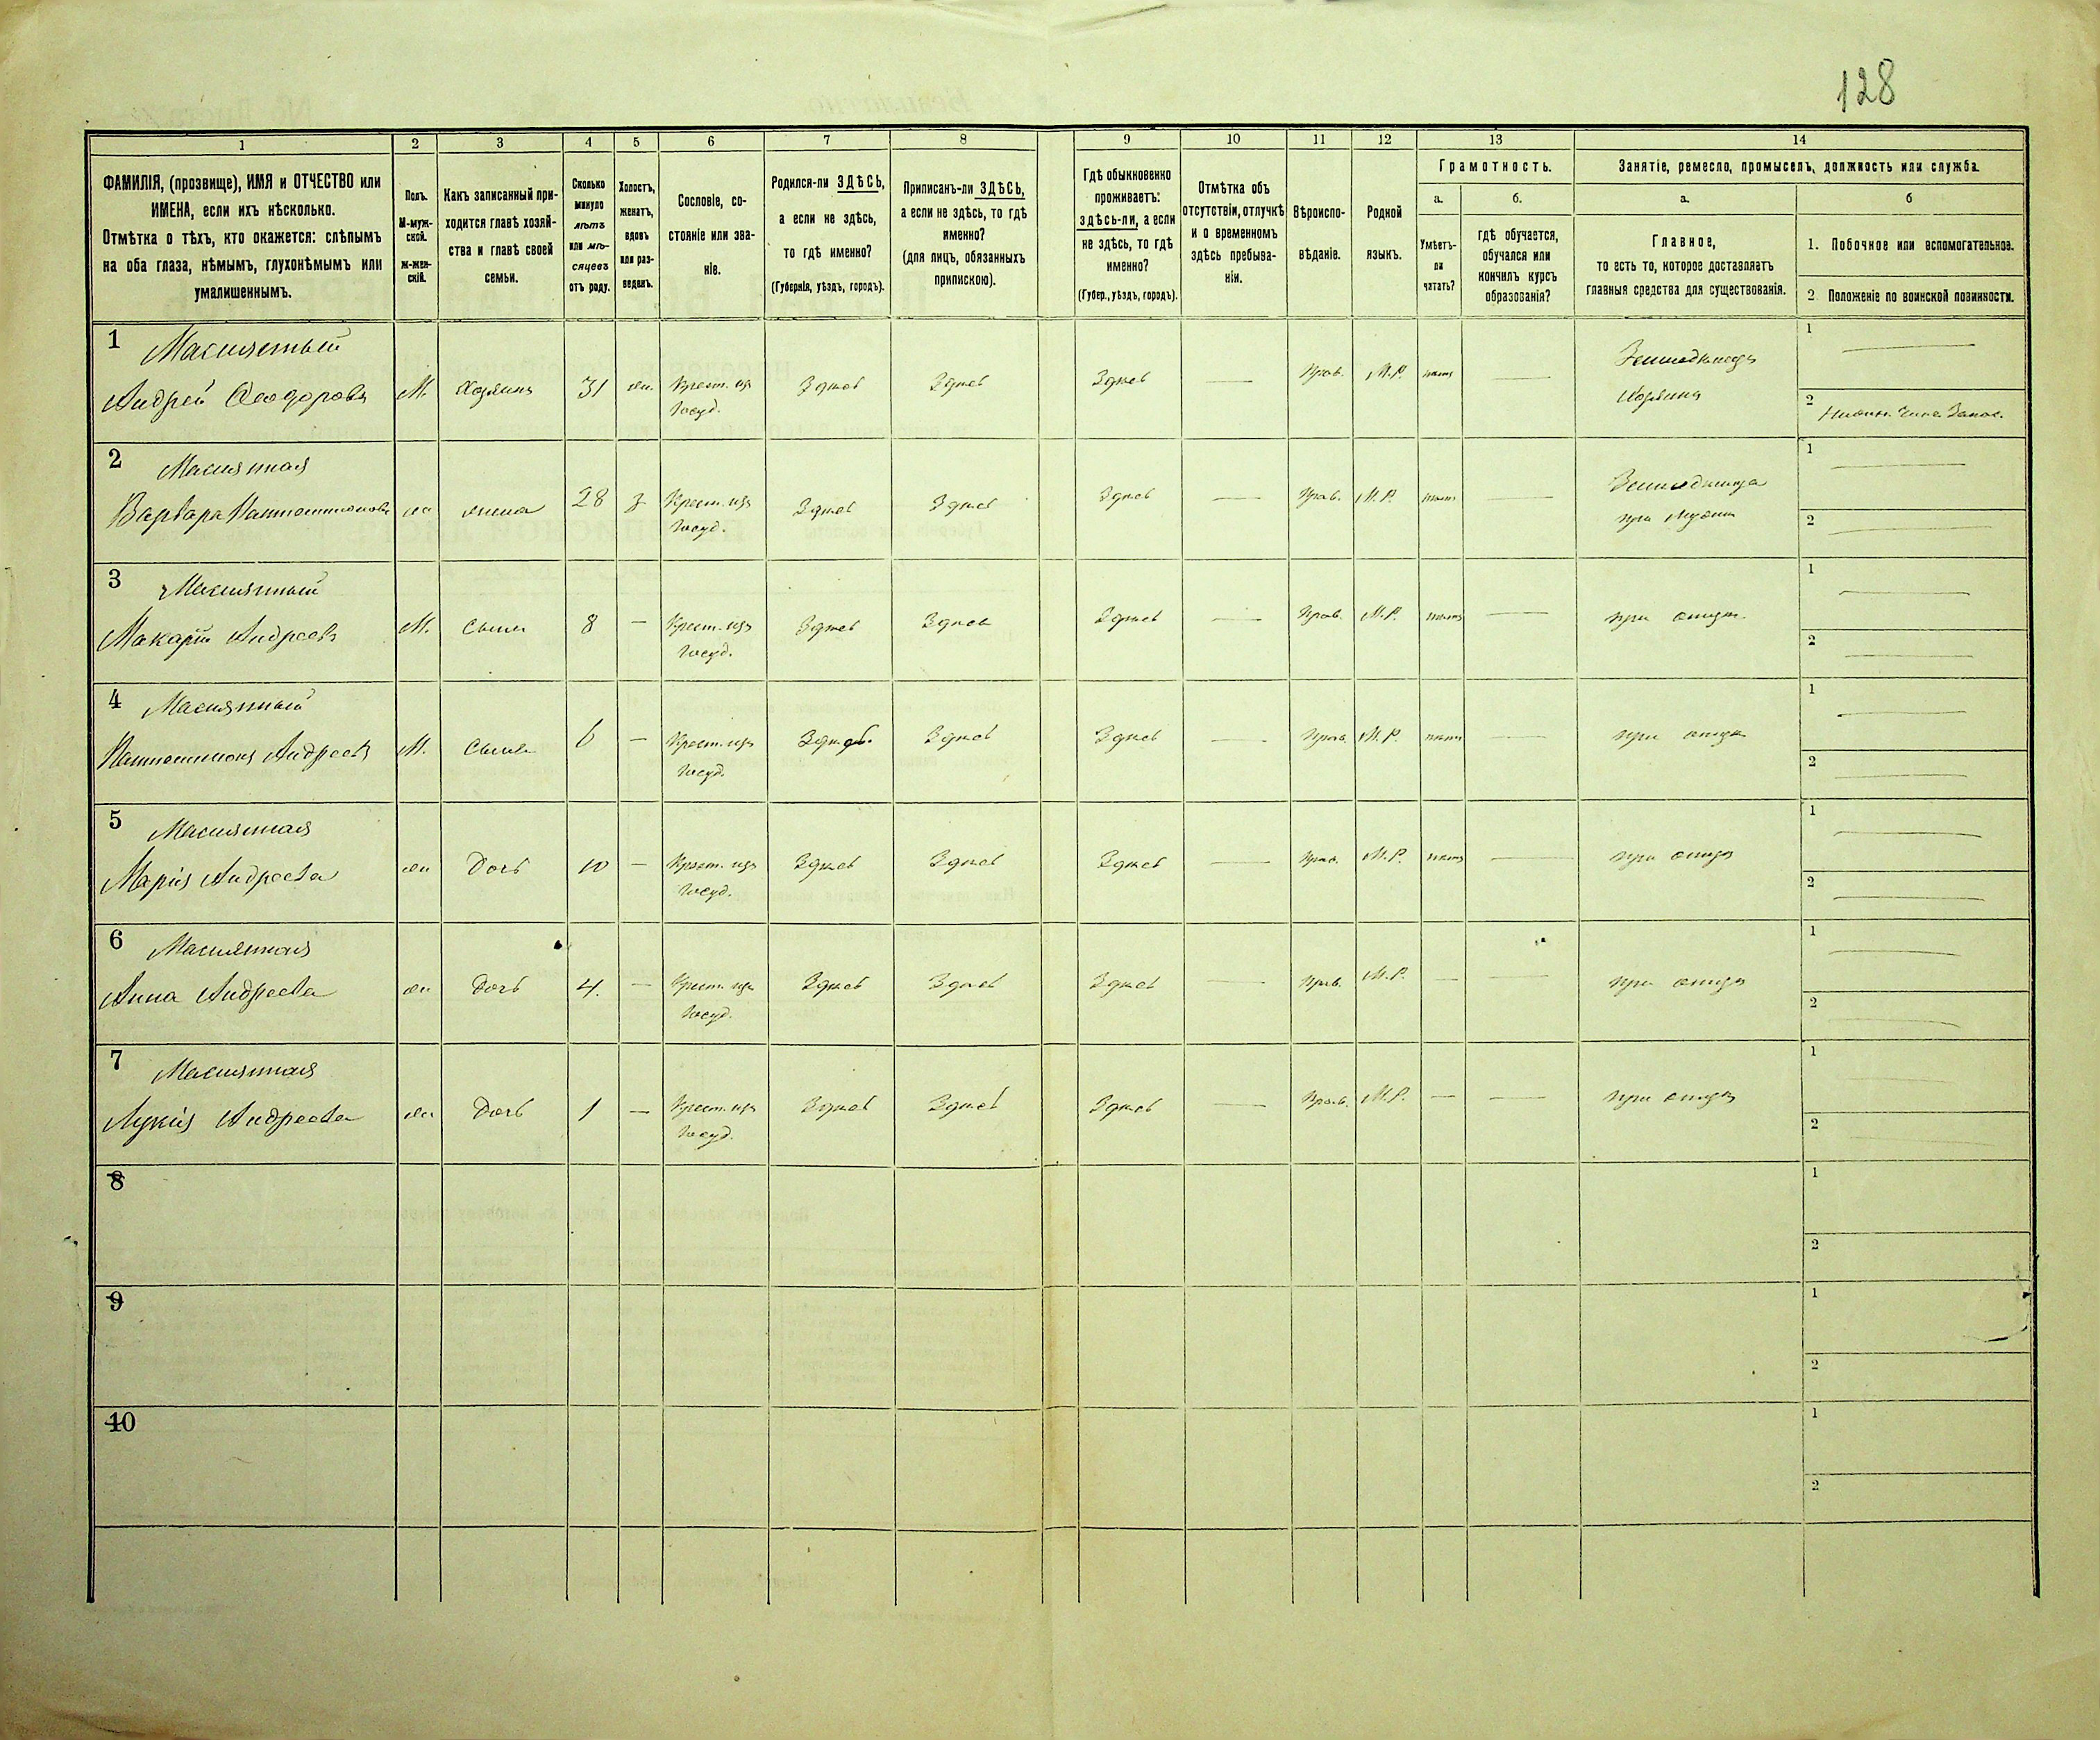 128
1
2
3
4
5
6
7
8
9
10
11
12
13
14
ФАМИЛІЯ, (прозвище), ИМЯ и ОТЧЕСТВО или
ИМЕНА, если ихъ нѣсколько.
Отмѣтка о тѣхъ, кто окажется: слѣпымъ
на оба глаза, нѣмымъ, глухонѣмымъ или
умалишеннымъ.
Полъ.
М-муж-
ской.
Ж-жен-
скій.
Какъ записанный при-
ходится главѣ хозяй-
ства и главѣ своей
семьи.
Сколько
минуло
лѣтъ
или мѣ-
сяцевъ
отъ роду.
Холостъ,
женатъ,
вдовъ
или раз-
веденъ.
Сословіе, со-
стояніе или зва-
ніе.
Родился-ли ЗДѢСЬ,
а если не здѣсь,
то гдѣ именно?
(Губернія, уѣздъ, городъ).
Приписанъ-ли ЗДѢСЬ,
а если не здѣсь, то гдѣ
именно?
(для лицъ, обязанныхъ
припискою).
Гдѣ обыкновенно
проживаетъ:
здѣсь-ли, а если
не здѣсь, то гдѣ
именно?
(Губер., уѣздъ, городъ).
Отмѣтка объ
отсутствіи, отлучкѣ
и о временномъ
здѣсь пребыва-
ніи.
Вѣроиспо-
вѣданіе.
Родной
языкъ.
Грамотность.
а.
Умѣетъ-
ли
читать?
б.
гдѣ обучается,
обучался или
кончилъ курсъ
образованія?
Занятіе, ремесло, промыселъ, должность или служба.
а.
Главное,
то есть то, которое доставляетъ
главныя средства для существованія.
б
1. Побочное или вспомогательное.
2 Положеніе по воинской повинности.
1
Андрей Ѳеодоровъ
М.
Хозяинъ
31
Крест. изъ
Госуд.
Здѣсь
Здѣсь
Здѣсь
—
Прав.
М.Р.
нѣтъ
—
Земледѣлецъ
Хозяинъ
1 —
2
2
Варвара
жена
28
З
Крест. изъ
Госуд.
Здѣсь
Здѣсь
Здѣсь
—
Прав.
М.Р.
нѣтъ
—
при мужѣ
1 —
2 —
3
Макарій Андреевъ
М.
Сынъ
8
—
Крест. изъ
Госуд.
Здѣсь
Здѣсь
Здѣсь
—
Прав.
М.Р.
нѣтъ
—
при отцѣ
1 —
2 —
4
Андреевъ
М.
Сынъ
6
—
Крест. изъ
Госуд.
Здѣсь.
Здѣсь
Здѣсь
—
Прав.
М.Р.
нѣтъ
—
при отцѣ
1 —
2 —
5
Марія Андреева
Дочь
10
—
Крест. изъ
Госуд.
Здѣсь
Здѣсь
Здѣсь
—
Прав.
М.Р.
нѣтъ
—
при отцѣ
1 —
2 —
6
Анна Андреева
Дочь
4.
—
Крест. изъ
Госуд.
Здѣсь
Здѣсь
Здѣсь
—
Прав.
М.Р.
—
—
при отцѣ
1 —
2 —
7
Лукія Андреева
Дочь
1
—
Крест. изъ
Госуд.
Здѣсь
Здѣсь
Здѣсь
—
Прав.
М.Р.
—
—
при отцѣ
1 —
2 —
8
1
2
9
1
2
10
1
2